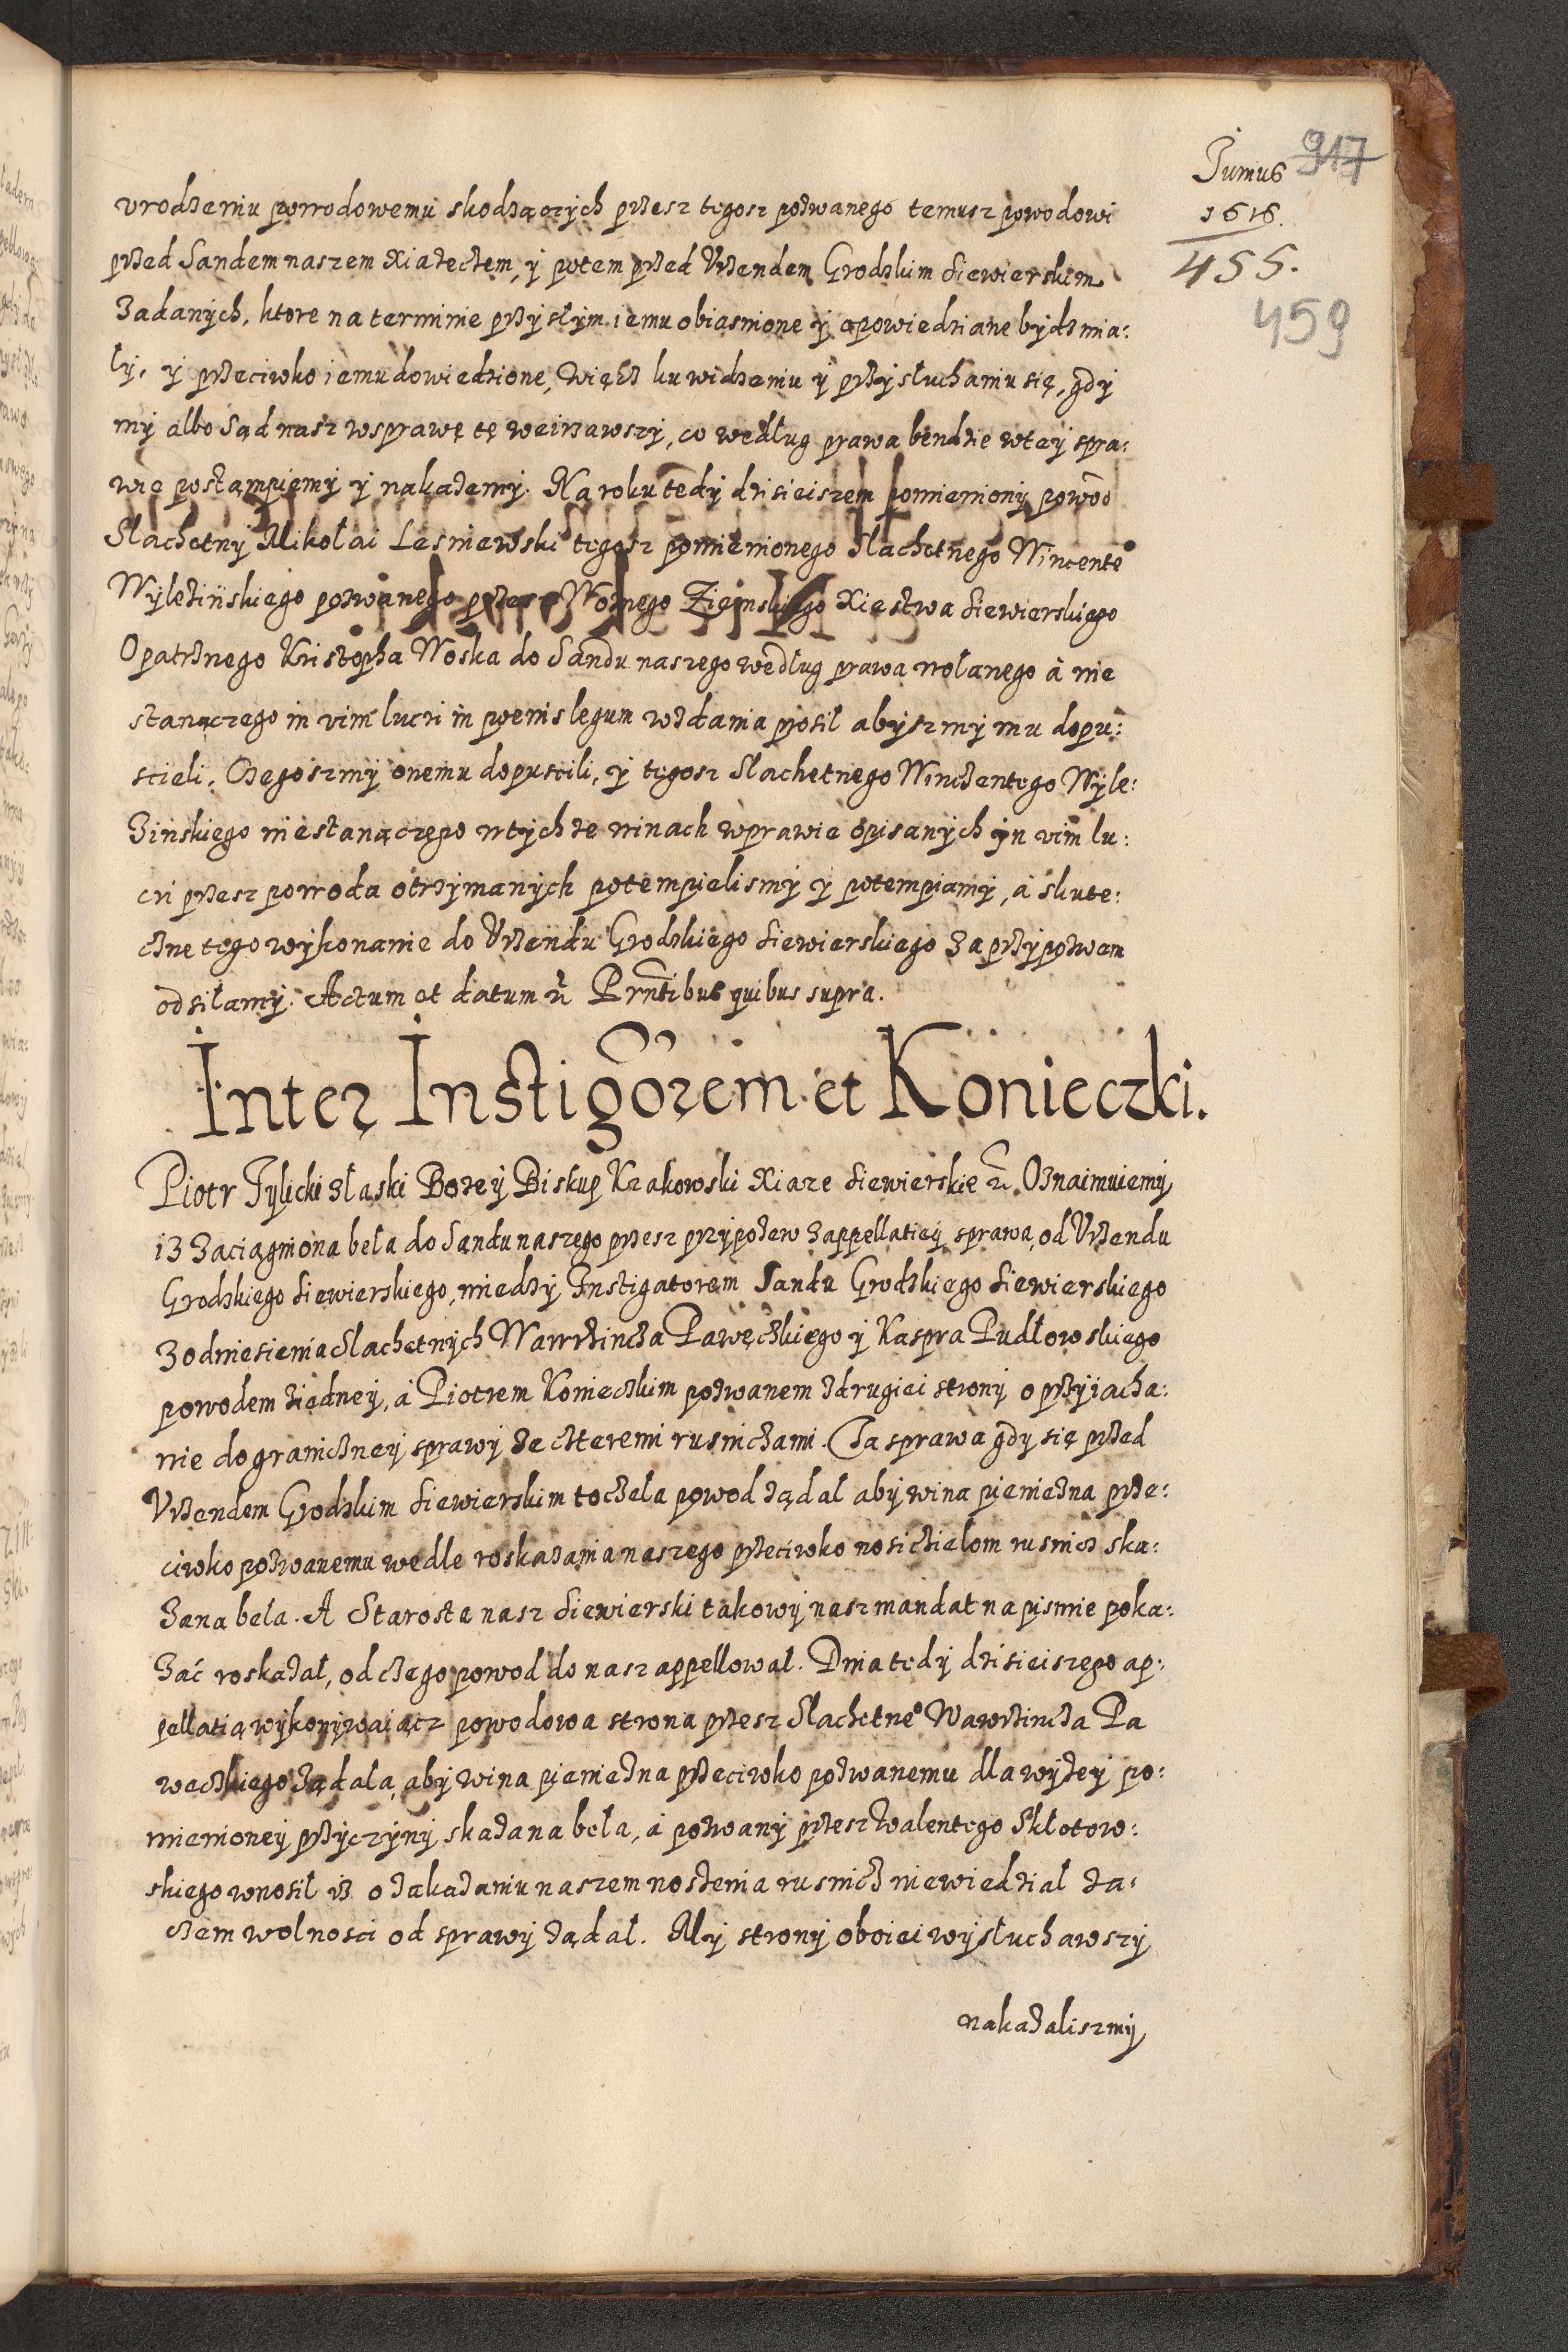 Junius 917
1616.
455.
459
vrodzeniu powodowemu skodzączych przesz tegosz pozwanego temusz powodowi
przed Sandem naszem Xiazeczem, y potem przed Vrzendem Grodzkim Siewierskim
Zadanych, ktore na terminie przyslym iemu obiasnione y opowiedziane bydz mia:
ly, y przeciwko iemu dowiedzione, Więcz ku widzeniu y przysluchaniu się, gdy
my albo Sąd nasz wsprawę tę weirzawszy, co według prawa bendzie wtey spra:
wie postąmpiemy y nakazemy. Na roku tedy dzisieiszem pomieniony powod
Slachetny Mikołai Lesniewski tegosz pomienionego Slachetnego Wincente°
Wylezińskïego pozwanego przesz Woznego Ziemskiego Xiestwa Siewierskiego
Opatrznego Kristopha Woska do Sandu naszego według prawa wolanego à nie
stanączego in vim lucri in poenis legum wzdania prosil abyszmy mu dopu:
scieli. Czegoszmy onemu dopuscili, y tegosz Slachetnego Winczentego Wyle:
Zinskiego niestanączego wtychze winach wprawie opisanych in vim lu:
cri przesz powoda otrzymanych potempielismy y potempiamy, à skute:
czne tego wykonanie do Vrzendu Grodzkiego Siewierskiego Za przypozwem
odsilamy. Actum et datum ut Prntibus quibus supra.
Inter Instigōrem et Konieczki.
Piotr Tylicki Z laski Bozey Biskup Krakowski Xiaze Siewierskie &. Oznaimuiemy
iz Zaciągniona bela do Sandu naszego przesz przypozew Zappellatiey sprawa, od Vrzendu
Grodzkiego Siewierskiego, miedzy Instigatorem Sandu Grodzkiego Siewierskiego
Zodniesienia Slachetnych Wawrzincza Pawęczkiego y Kaspra Pudłowskiego
powodem ziedney, à Piotrem Konieczkim pozwanem zdrugiei strony o przyiacha:
nie do graniczney sprawy ze czteremi rusniczami. Ta sprawa gdy się przed
Vrzendem Grodzkim Siewierskim toczela powod ządal aby wina pieniezna prze:
ciwko pozwanemu wedle roskazania naszego przeciwko nosiczielom rusnicz ska:
Zana bela. A Starosta nasz Siewierski takowy nasz mandat na pismie poka:
Zać roskazał, od czego powod do nasz appellowal. Dnia tedy dzisieiszego ap:
pellatią wykonywaiącz powodowa strona przesz Slachetne° Wawrzincza Pa
weczkiego Ządala, aby wina pieniezna przeciwko pozwanemu dla wyzey po:
mienioney przyczyny skazana bela, à pozwany przesz Walentego Skłotow:
skiego wnosil iz o zakazaniu naszem noszenia rusnicz niewiedzial za:
czem wolnosci od sprawy ządal. My strony oboiei wysłuchawszy
nakazaliszmy